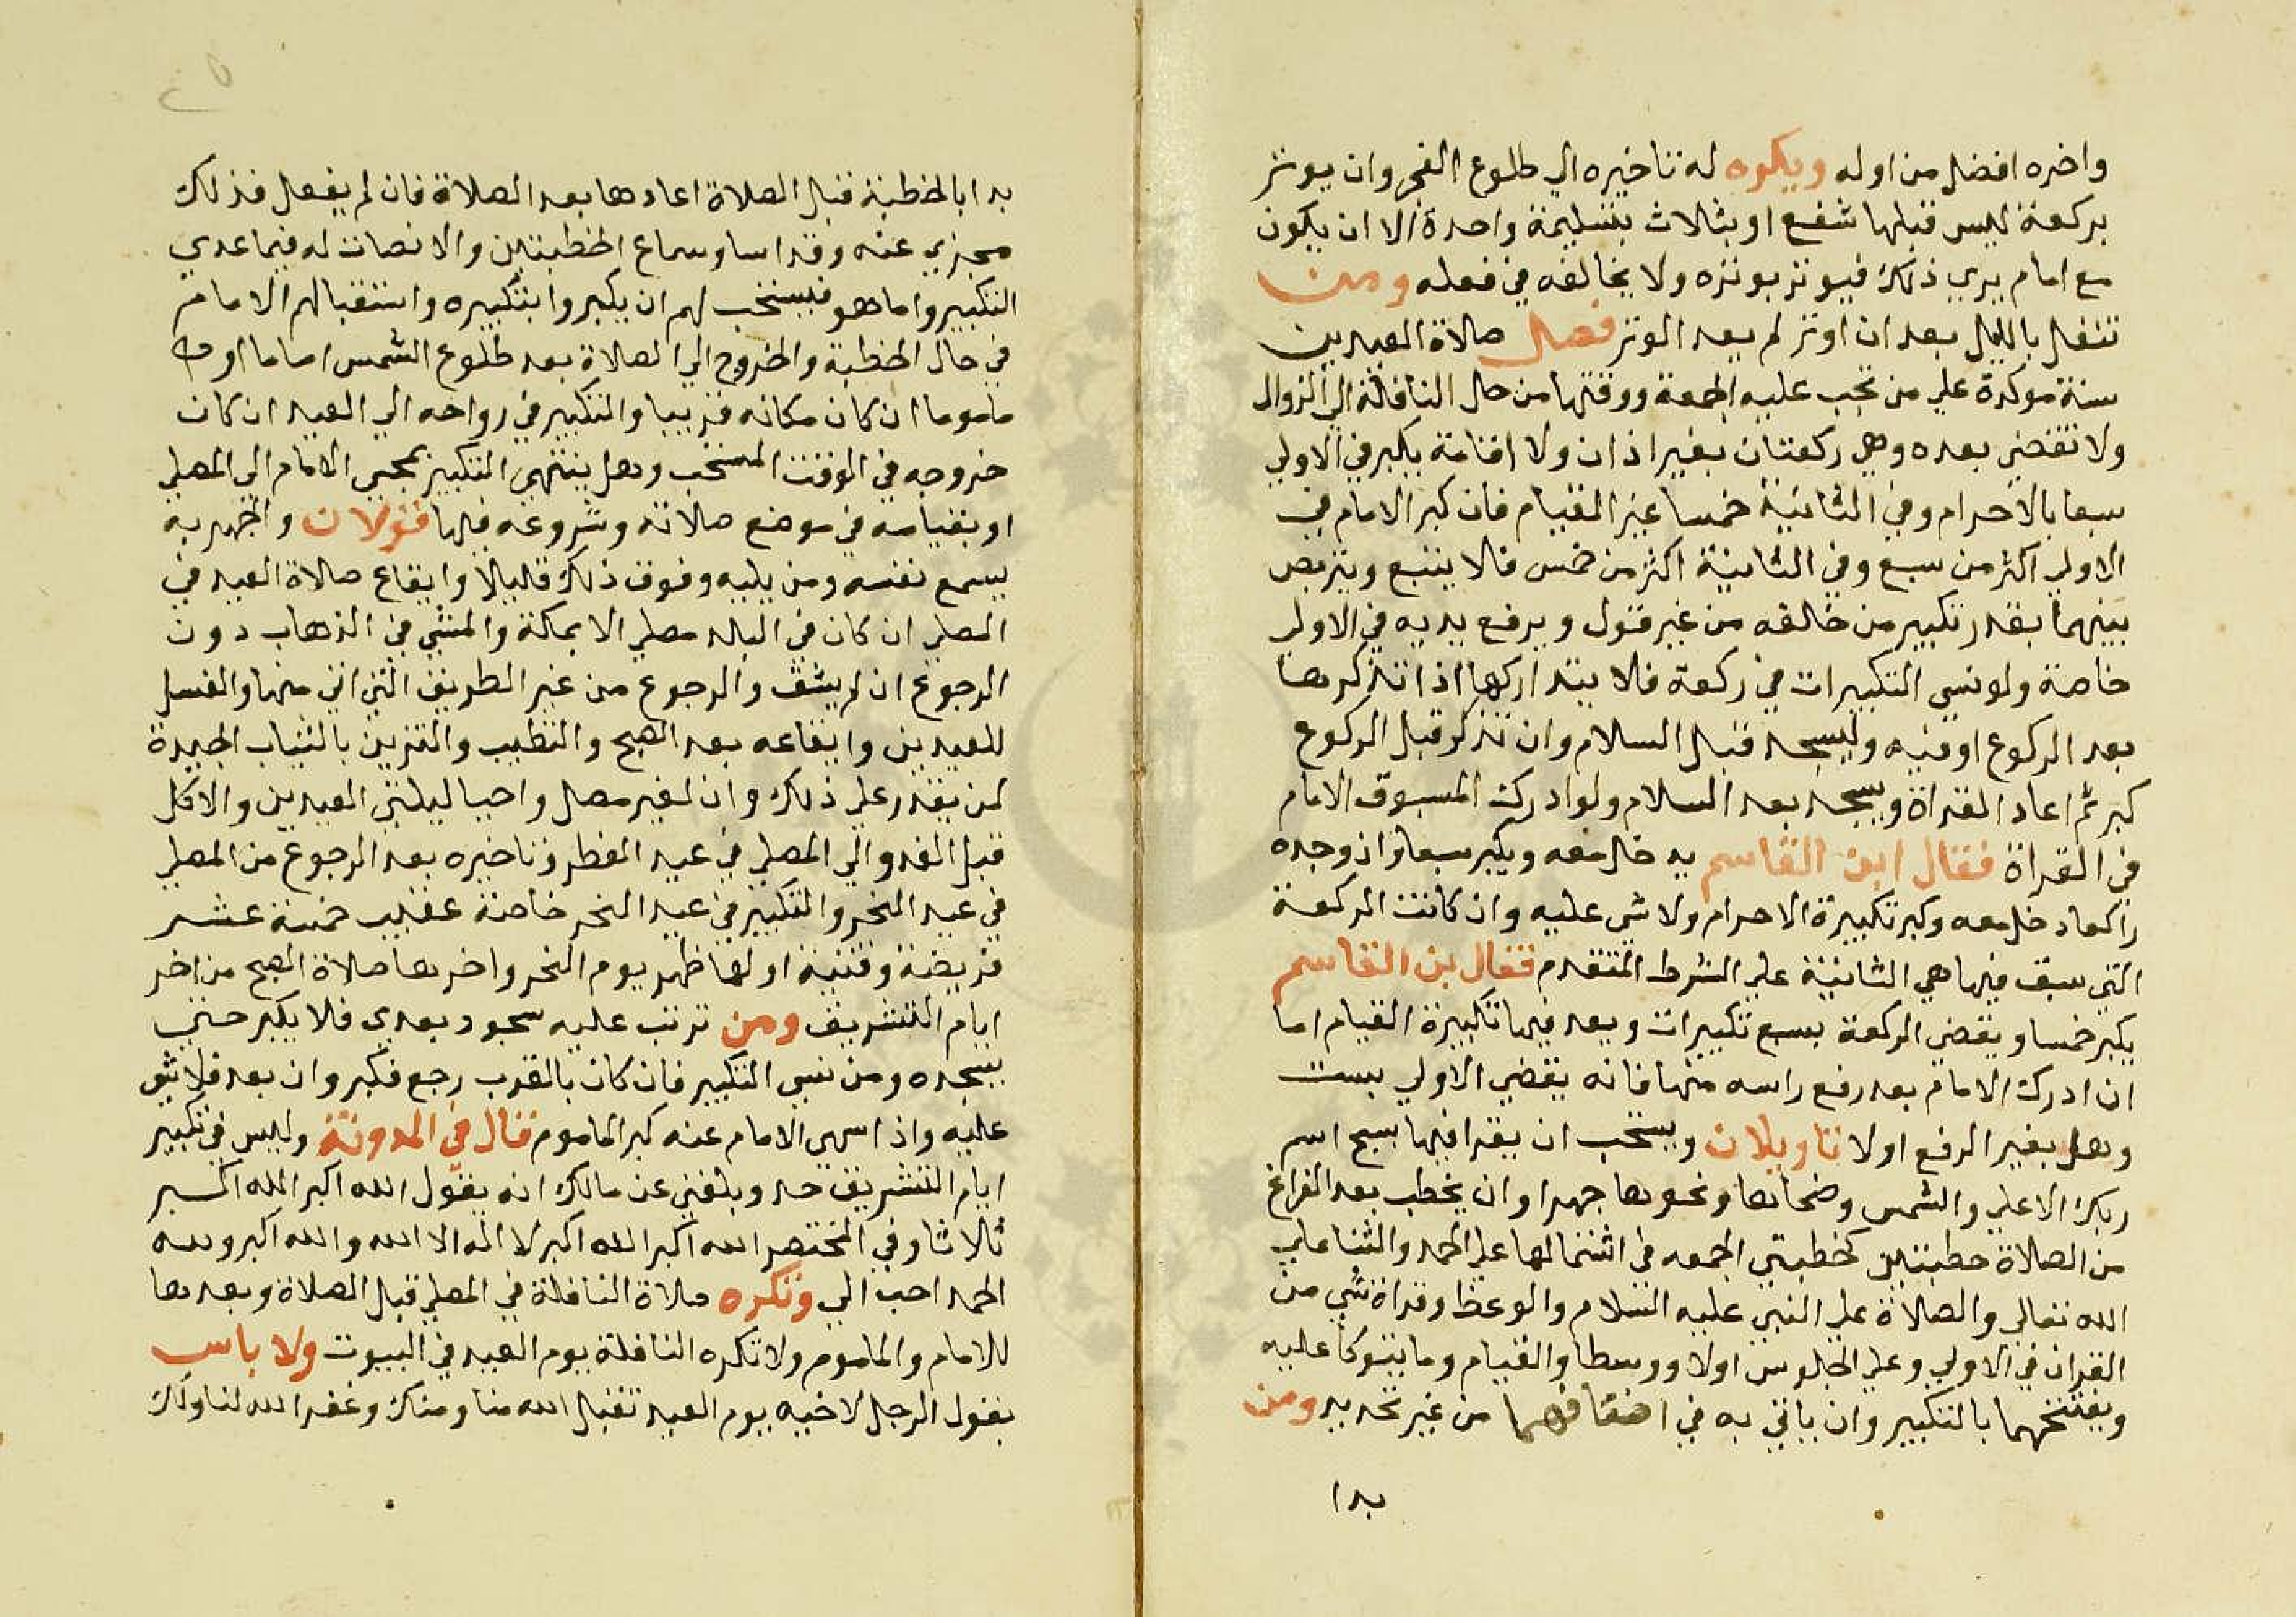 واخره افضل من اوله ويكره له تاخيره الي طلوع الفجر وان يوتر
بركعة ليس قبلها شفع او بثلاث بتسليمة واحدة الا ان يكون
مع امام يري ذلك فيوتر بوتره ولا يخالفه في فعله ومن
تنفل بالليل بعد ان اوتر لم يعد الوتر فصل صلاة العيدين
سنة موكدة علي من تجب عليه الجمعة ووقتها من حل النافلة الي الزوال
ولا تقضي بعده وهي ركعتان بغير اذان ولا اقامة يكبر في الاولي
سبعا بالاحرام وفي الثانية خمسا غير القيام فان كبر الامام في
الاولي اكثر من سبع وفي الثانية اكثر من خمس فلا يتبع ويتربص
بينهما بقدر تكبير من خالفه من غير قول ويرفع يديه في الاولي
خاصة ولو نسي التكبيرات في ركعة فلا يتداركها اذا تذكرها
بعد الركوع او فيه وليسجد قبل السلام وان تذكر قبل الركوع
كبر ثم اعاد القراة ويسجد بعد السلام ولو ادرك المسبوق الامام
في القراة فقال ابن القاسم يدخل معه ويكبر سبعا وان وجده
راكعا دخل معه وكبر تكبيرة الاحرام ولا شي عليه وان كانت الركعة
التي سبق فيها هي الثانية علي الشرط المتقدم فقال بن القاسم
يكبر خمسا ويقضي الركعة بسبع تكبيرات ويعد فيها تكبيرة القيام اما
ان ادرك الامام بعد رفع راسه منها فانه يقضي الاولي بست
وهل بغير الرفع اولا تاويلان ويستحب ان يقرا فيها بسبح اسم
ربك الاعلي والشمس وضحاها ونحوها جهرا وان يخطب بعد الفراغ
من الصلاة خطبتين كخطبتي الجمعه في اشتمالها علي الحمد والثنا علي
الله تعالي والصلاة علي النبي عليه السلام والوعظ وقراة شي من
القران في الاولي وعلي الجلوس اولا ووسطا والقيام وما يتوكا عليه
ويفتتحهما بالتكبير وان ياتي به في اضعافهما من غير تحديد ومن
بدا
بدا بالخطبة قبل الصلاة اعادها بعد الصلاة فان لم يفعل فذلك
مجزي عنه وقد اسا وسماع الخطبتين والانصات له فيما عدي
التكبير واما هو فيستحب لهم ان يكبروا بتكبيره واستقبالهم الامام
في حال الخطبة والخروج الي الصلاة بعد طلوع الشمس اماما او
ماموما ان كان مكانه قريبا والتكبير في رواحه الي العيد ان كان
خروجه في الوقت المستحب وهل ينتهي التكبير بمجي الامام الي المصلي
او بقيامه في موضع صلاته وشروعه فيها قولان والجهر به
يسمع نفسه ومن يليه وفوق ذلك قليلا وايقاع صلاة العيد في
المصلي ان كان في البلد مصلي الا بمكة والمشي في الذهاب دون
الرجوع ان لم يشق والرجوع من غير الطريق التي اتي منها والغسل
للعيدين وايقاعه بعد الصبح والتطيب والتزين بالثياب الجيدة
لمن يقدر علي ذلك وان لغير مصل واحيا ليلتي العيدين والاكل
قبل الغدو الي المصلي في عيد الفطر وتاخيره بعد الرجوع من المصلي
في عيد النحر والتكبير في عيد النحر خاصة عقيب خمسة عشر
فريضة وقتية اولها ظهر يوم النحر واخرها صلاة الصبح من اخر
ايام التشريق ومن ترتب عليه سجود بعدي فلا يكبر حتي
يسجده ومن نسي التكبير فان كان بالقرب رجع فكبر وان بعد فلا شي
عليه واذا سهي الامام عنه كبر الماموم قال في المدونة وليس في تكبير
ايام التشريق حد وبلغني عن مالك انه يقول الله اكبر الله اكبر
ثلاثا وفي المختصر الله اكبر الله اكبر لا اله الا الله والله اكبر ولله
الحمد احب الي وتكره صلاة النافلة في المصلي قبل الصلاة وبعدها
للامام والماموم ولا تكره النافلة يوم العيد في البيوت ولا باس
بقول الرجل لاخيه يوم العيد تقبل الله منا ومنك وغفر الله لنا ولك